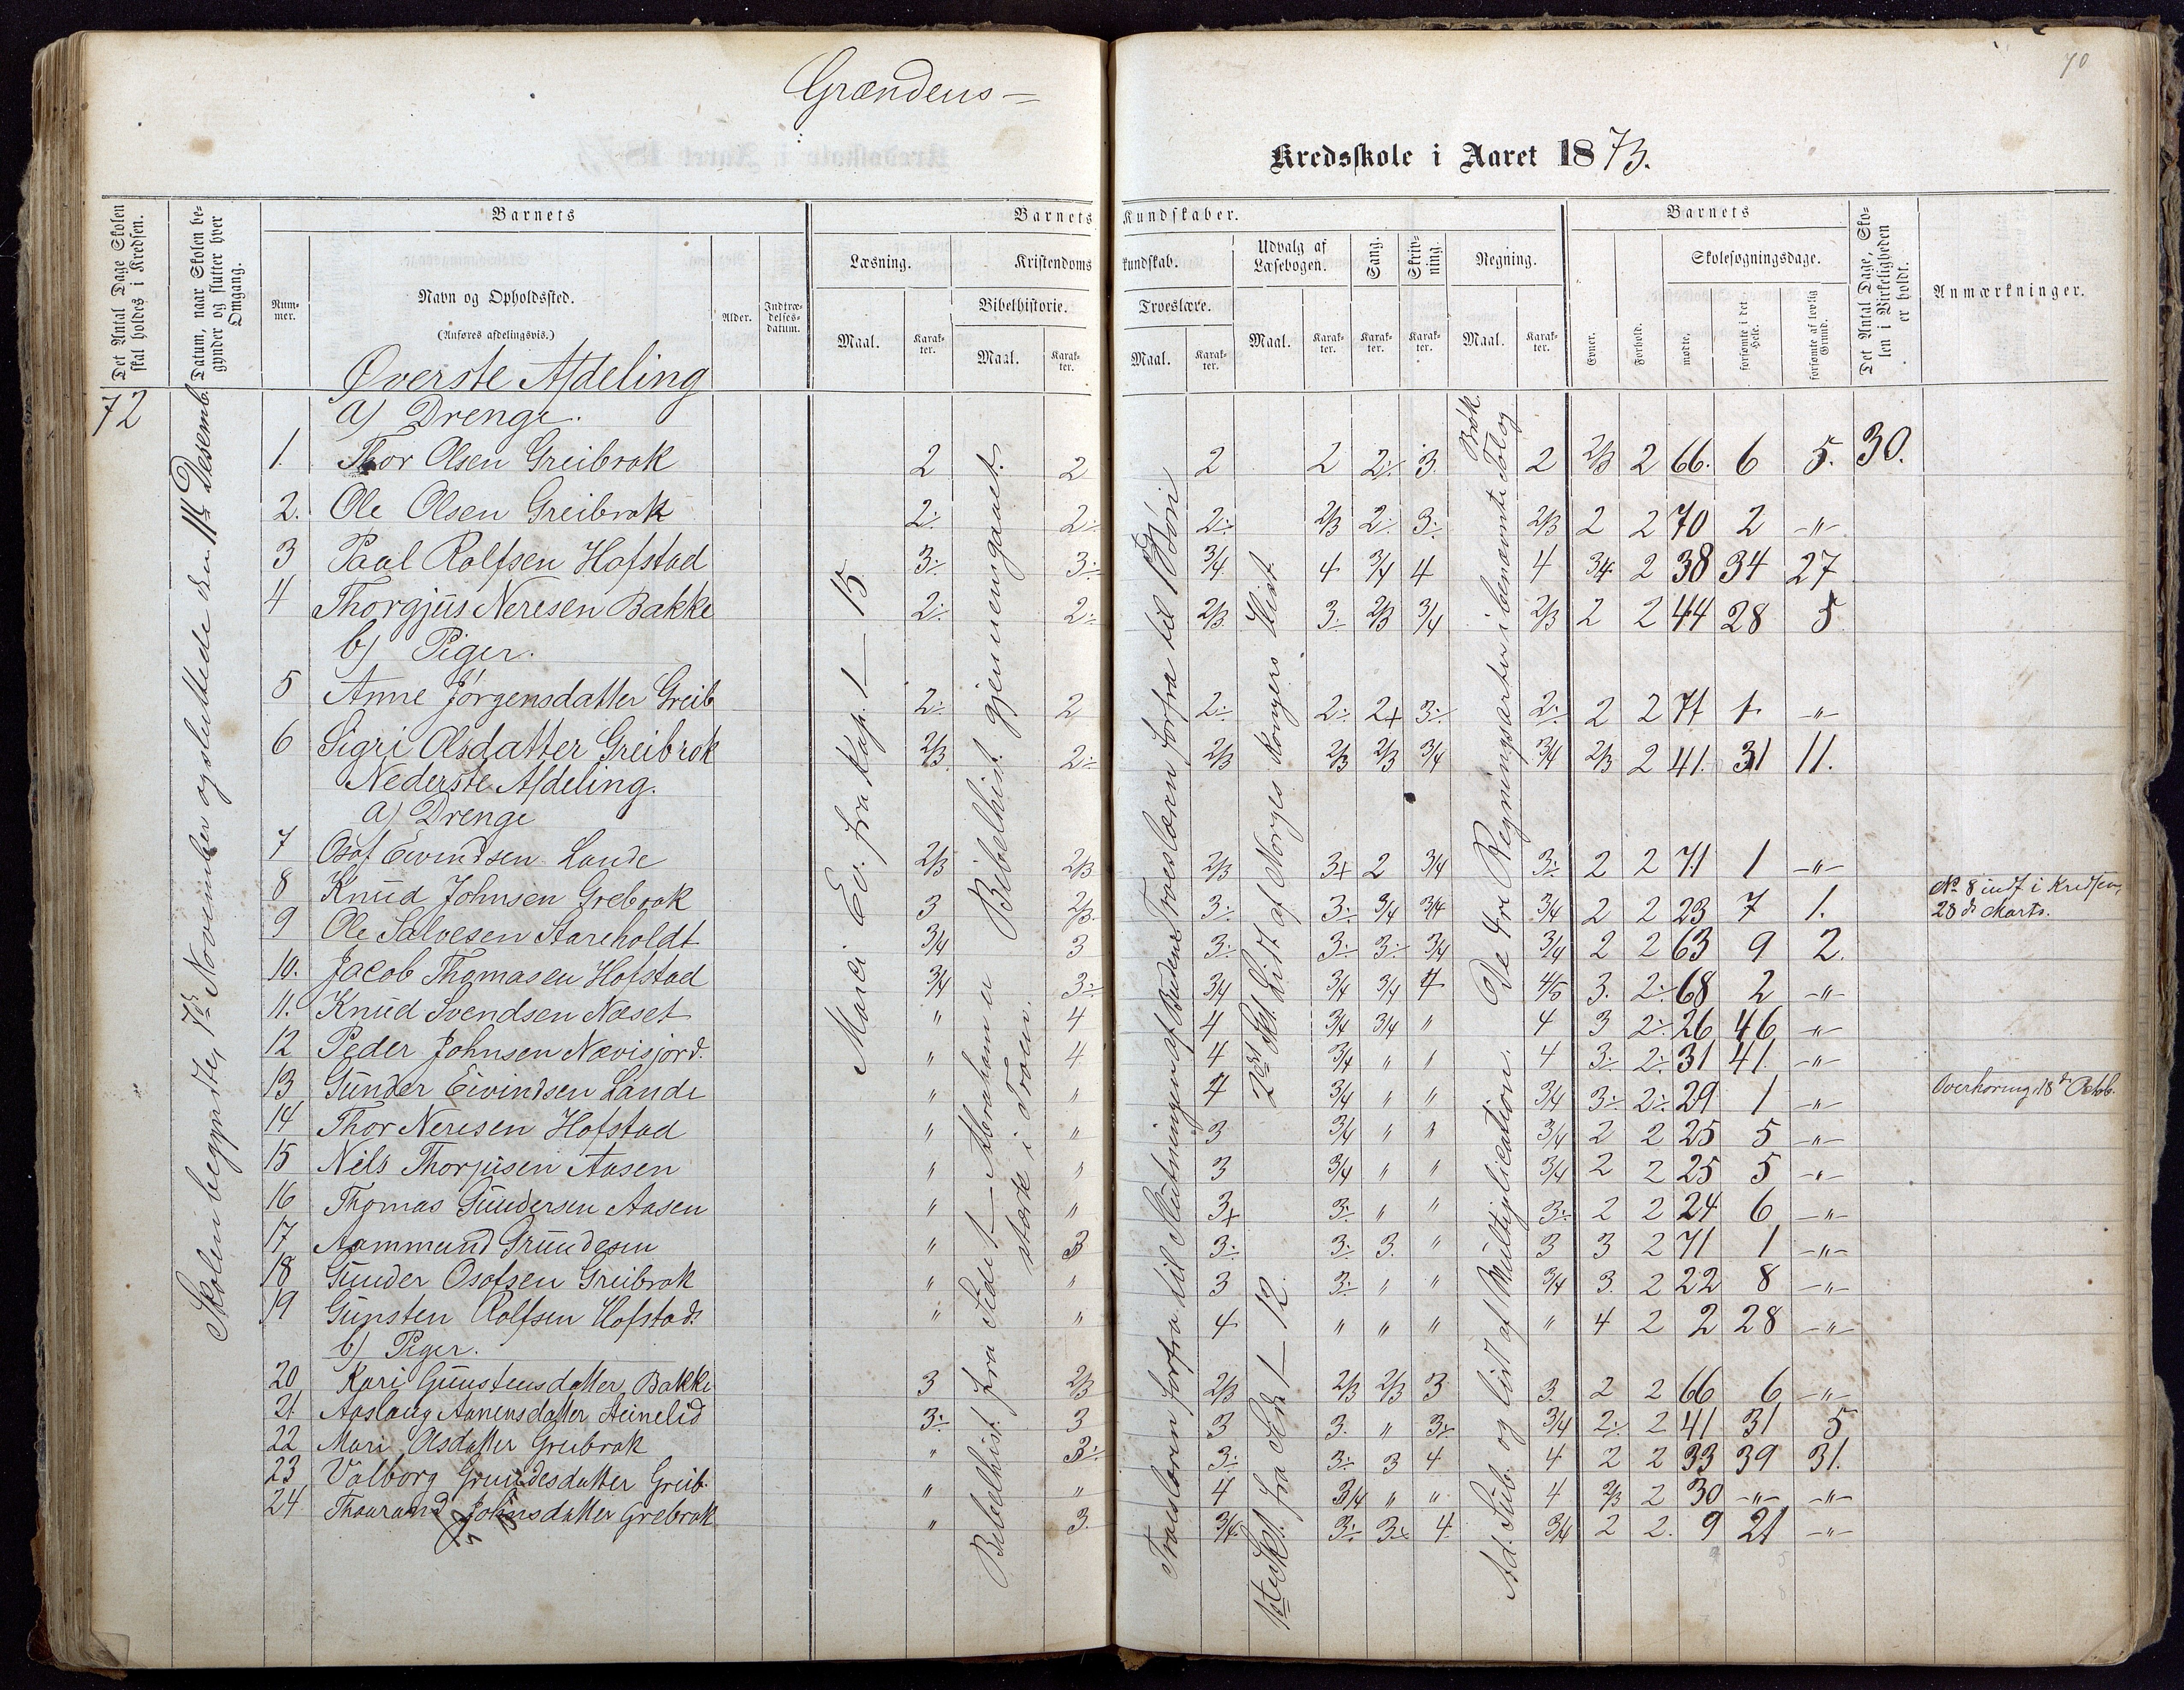 70
Grændens =
Kredsskole i Aaret 1873.
Det Antal Dage Skolen skal holdes i Kredsen.
Datum, naar Skolen begynder og slutter hver Omgang.
Barnets
Barnets Kundskaber.
Barnets
Det Antal Dage, Skolen i Virkeligheden er holdt.
Anmærkninger.
Nummer.
Navn og Opholdssted.
(Anføres afdelingsvis.)
Alder.
Indtrædelsesdatum.
Læsning.
Kristendomskundskab.
Udvalg af Læsebogen.
Sang.
Skrivning.
Regning.
Evner.
Forhold.
Skolesøgningsdage.
Bibelhistorie.
Troeslære.
Maal.
Karakter.
Maal.
Karakter.
Maal.
Karakter.
Maal.
Karakter.
Karakter.
Karakter.
Maal.
Karakter.
mødte.
forsømte i det Hele.
forsømte af lovlig Grund.
72
Skolen begyndte, 17de November og sluttede den 11te Desembr
Øverste Afdeling
a) Drenge.
1. Thor Olsen Greibrok 2 2 2 2 2÷ 3. 2 2/3 2 66. 6 5. 30.
2. Ole Olsen Greibrok 2÷ 2÷ 2÷ 2/3 2÷ 3÷ 2/3 2 2 70 2 -"-
3 Paal Rolfsen Hofstad 3÷ 3÷ 3/4 4 3/4 4 4 3/4 2 38 34 27
4 Thorgjus Neresen Bakke 2÷ 2÷ 2/3 3÷ 2/3 3/4 2/3 2 2 44 28 5
b) Piger.
5 Anne Jörgensdatter Greib 2÷ 2 2÷ 2÷ 2+ 3÷ 2÷ 2 2 71 1 -"-
6 Sigri Olsdatter Greibrok 2/3 2÷ 2/3 2/3 2/3 3/4 3/4 2/3 2 41. 31 11.
Nederste Afdeling.
a) Drenge
7 Osof Eivindsen Lande 2/3 2/3 2/3 3+ 2 3/4 3÷ 2 2 71 1 -"-
8 Knud Johnsen Grebrok 3 2/3 3÷ 3÷ 3/4 3/4 3/4 2 2 23 7 1. No 8 indf i Kredsen, 28de Marts.
9 Ole Salvesen Stareholdt 3/4 3 3÷ 3÷ 3÷ 3/4 3/4 2 2 63 9 2.
10. Jacob Thomasen Hofstad 3/4 3÷ 3/4 3/4 3/4 4 4/5 3. 2÷ 68 2 -"-
11. Knud Svendsen Næset " 4 4 3/4 3/4 " 4 3 2÷ 26 46 -"-
12 Peder Johnsen Nævisjord. " 4. 4 3/4 " " 4 3÷ 2÷ 31 41. -"-
13 Gunder Eivindsen Lande " " 4 3/4 " " 3/4 3÷ 2÷ 29 1 -"- Overhøring, 18de Octob.
14 Thor Neresen Hofstad " " 3 3/4 " " 3/4 2 2 25 5 -"-
15 Nils Thorjusen Aasen " " 3 3/4 " " 3/4 2 2 25 5 -"-
16 Thomas Gundersen Aasen " " 3+ 3÷ " " 3÷ 2 2 24 6 -"-
17 Aammund Grundesen " 3 3÷ 3÷ 3. " 3 3 2 71 1 -"-
18 Gunder Osofsen Greibrok " " 3 3÷ " " 3/4 3. 2 22 8 -"-
19 Gunsten Rolfsen Hofstad. " " 4 " " " " 4 2 2 28 -"-
b) Piger.
20 Kari Gunstensdatter Bakke 3 2/3 2/3 2/3 2/3 3 3. 2 2 66 6 -"-
21 Aaslaug Aanensdatter Steinelid 3÷ 3 3 3. " 3÷ 3/4 2÷ 2 41 31 5
22 Mari Olsdatter Greibrok " 3÷ 3÷ 3÷ 3 4 4 2 2 33 39 31.
23 Valborg Grundesdatter Greib. " " 4 3/4 " " 4 2/3 2 30 -"- -"-
24 Thaarand Johnsdatter Grebrok " 3. 3/4 3÷ 3+ 4. 3/4 2 2. 9 21 -"-
Marci Ev. fra Kap. 1 — 15
Bibelhist. gjennemgaaet.
Bibelhist. fra Side 1 — Abraham er stærk i Troen.
Troeslæren forfra til 1ste Bön
Troeslæren forfra til Slutningen af Budene
2det Skt. Lidt af Norges Kongers Hist.
1ste Skt. fra Side 1 — 12
De 4re Regningsarter i benævnte Tal og Brök.
Ad. Sub. og lidt af Multiplication.